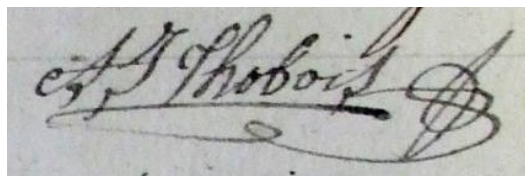 A J Thobois